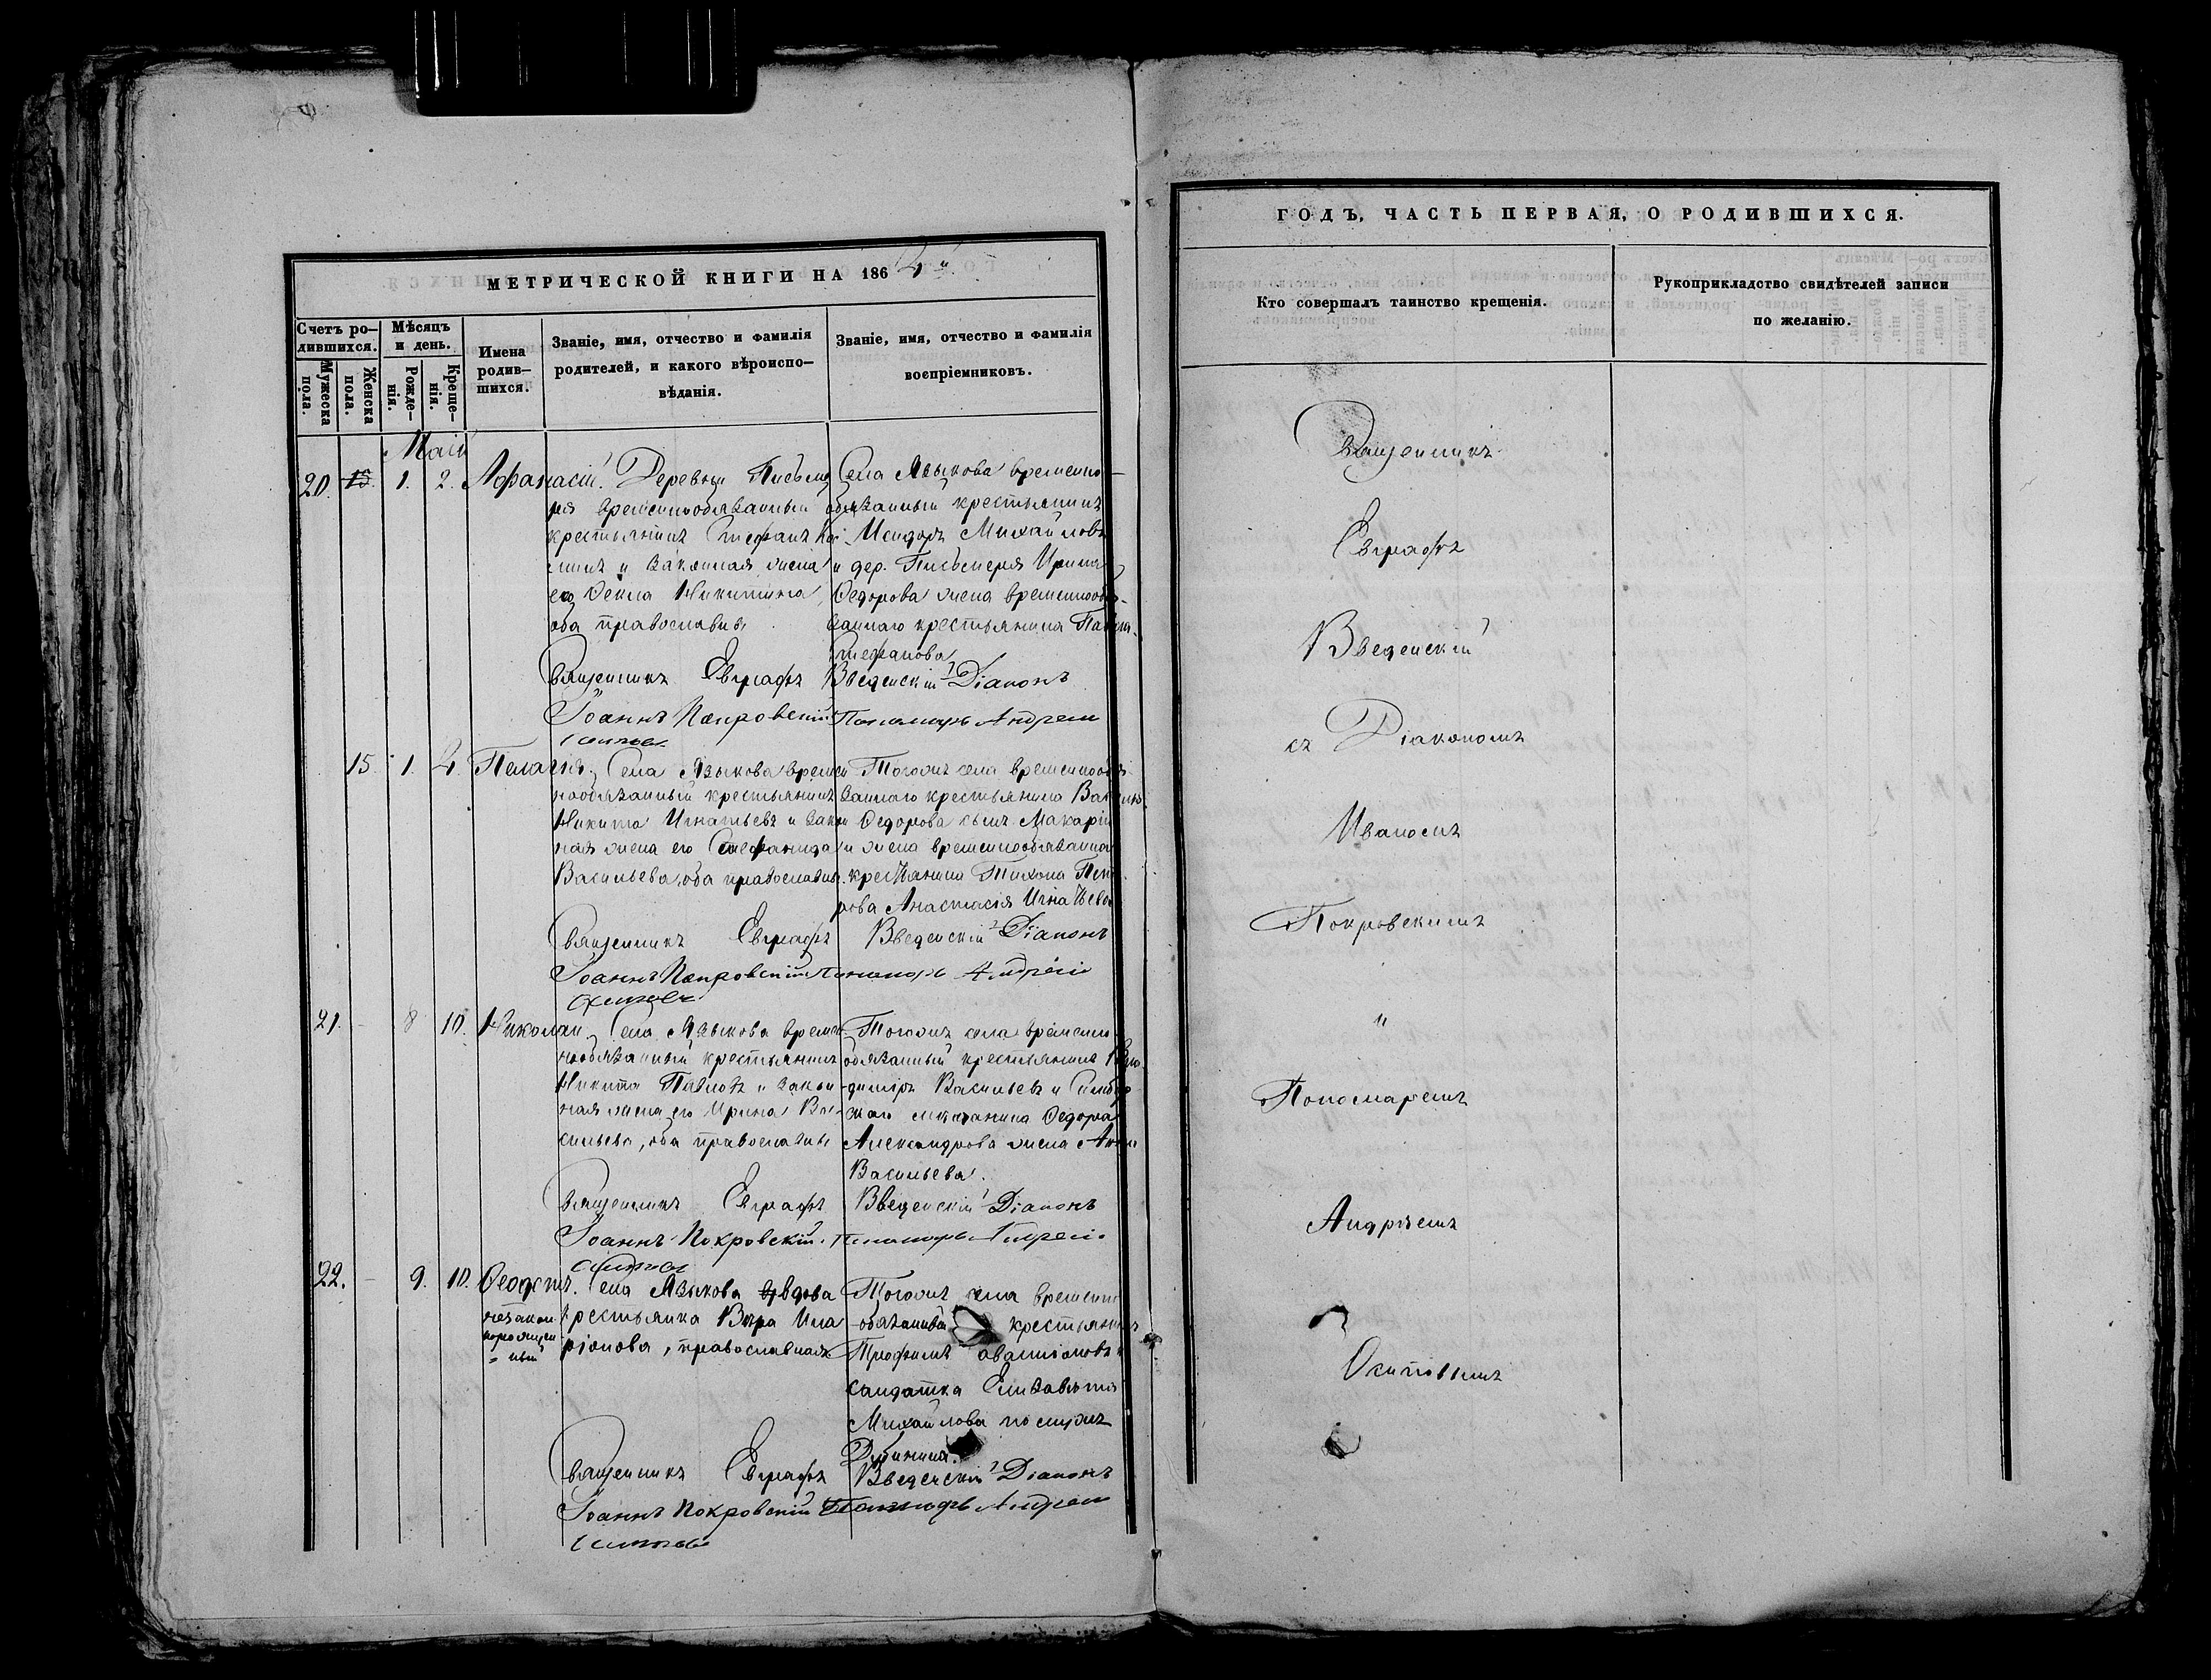 МЕТРИЧЕСКОЙ КНИГИ НА 1862й.
Счетъ ро-
дившихся.
Мужеска
пола.
Женска
пола.
Мѣсяцъ
и день.
Рожде-
нія.
Креще-
нія.
Имена
родив-
шихся.
Званіе, имя, отчество и фамилія
родителей, и какого вѣроиспо-
вѣданія.
Званіе, имя, отчество и фамилія
воспріемниковъ.
Маій
20. 15. 1. 2. Афанасій. Деревни Письме
ря временнообязанный
крестьянинъ Стефанъ
и законная жена
его Ѳекла Никитина,
оба православны.
Села Языкова временно-
обязанный крестьянинъ
Исидоръ Михайловъ
и дер. Письмеря Ирина
Ѳедорова жена временнообя-
заннаго крестьянина Павла
Стефанова
Священникъ Евграфъ Введенскій Діаконъ
Іоаннъ Покровскій Пономарь Андрей
Осиповъ
15. 1. 2. Пелагія. Села Языкова времен
нообязанный крестьянинъ
Никита Игнатьевъ и закон
ная жена его Стефанида
Васильева, оба православны.
Тогожъ села временнообя-
заннаго крестьянина
Ѳедорова сынъ Макарій
и жена временнообязанна
крестьянина Тихона Пет
рова Анастасія Игнатьева
Священникъ Евграфъ Введенскій Діаконъ
Іоаннъ Покровскій Пономарь Андрей
Осиповъ
21. - 8 10. Николай. Села Языкова времен
нообязанный крестьянинъ
Никита Павловъ и закон
ная жена его Ирина Ва-
сильева, оба православны
Тогожъ села временно
обязанный крестьянинъ Вла-
диміръ Васильевъ и Симбир
скаго мѣщанина Ѳедора
Александрова жена Анна
Васильева.
Священникъ Евграфъ Введенскій Діаконъ
Іоаннъ Покровскій. Пономарь Андрей
Осиповъ
22. - 9. 10. Ѳеодотъ.
незакон
норожден
= ный
Села Языкова вдова
крестьянка Вѣра Ила
ріонова, православная
Тогожъ села временно
обязанный крестьянинъ
Трофимъ и
салдатка Елизавета
Михайлова по мужѣ
Дубинина.
Священникъ Евграфъ Введенскій Діаконъ
Іоаннъ Покровскій Пономарь Андрей
Осиповъ
ГОДЪ, ЧАСТЬ ПЕРВАЯ, О РОДИВШИХСЯ.
Кто совершалъ таинство крещенія.
Рукоприкладство свидѣтелей записи
по желанію.
Священникъ
Евграфъ
Введенскій
съ Діакономъ
Иваномъ
Покровскимъ
"
Пономаремъ
Андреемъ
Осиповымъ